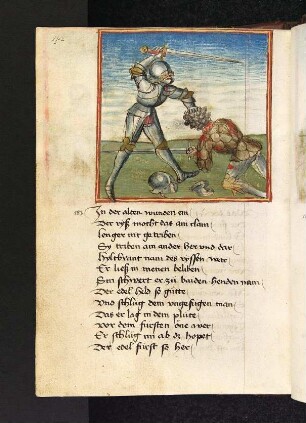 183
In der alten wunden ein
Der ryß mocht dat am clain
lenger nit getriben
Sy triben am ander her vnd dar
Hyltbrant nam des ryssen war
Er ließ in nienen beliben
Sin schwert er zu baiden henden nam
Der edel held so gütte
Vnd schlůg dem ungefügen man
Das er lag in dem plute
vor dem fursten one
Er schlůg im ab dz hopet
Der edel fürst so her